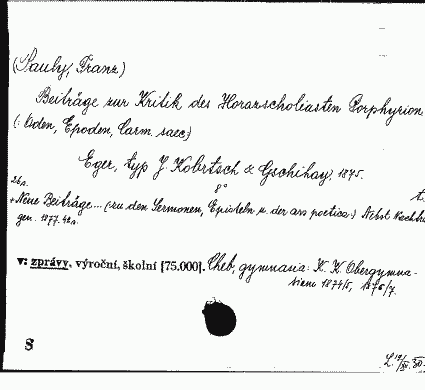 (Pauly, Franz)
Beiträge zur Kritik des Horazscholiasten Porphyrion.
(: Oden, Epoden, Carm. saec)
Eger, typ J. Kobrtsch & Gschihay, 1875.
8°
26 s. t.
+ Neue Beiträge... (:zu den Sermonen, Episteln u. der ars poetica:) Nebst Nachträ-
gen. 1877. 42 s.
v: zprávy, výroční, školní [75.000]. Cheb, gymnasia: K. K. Obergymna-
sium 1874/5, 1876/7.
8